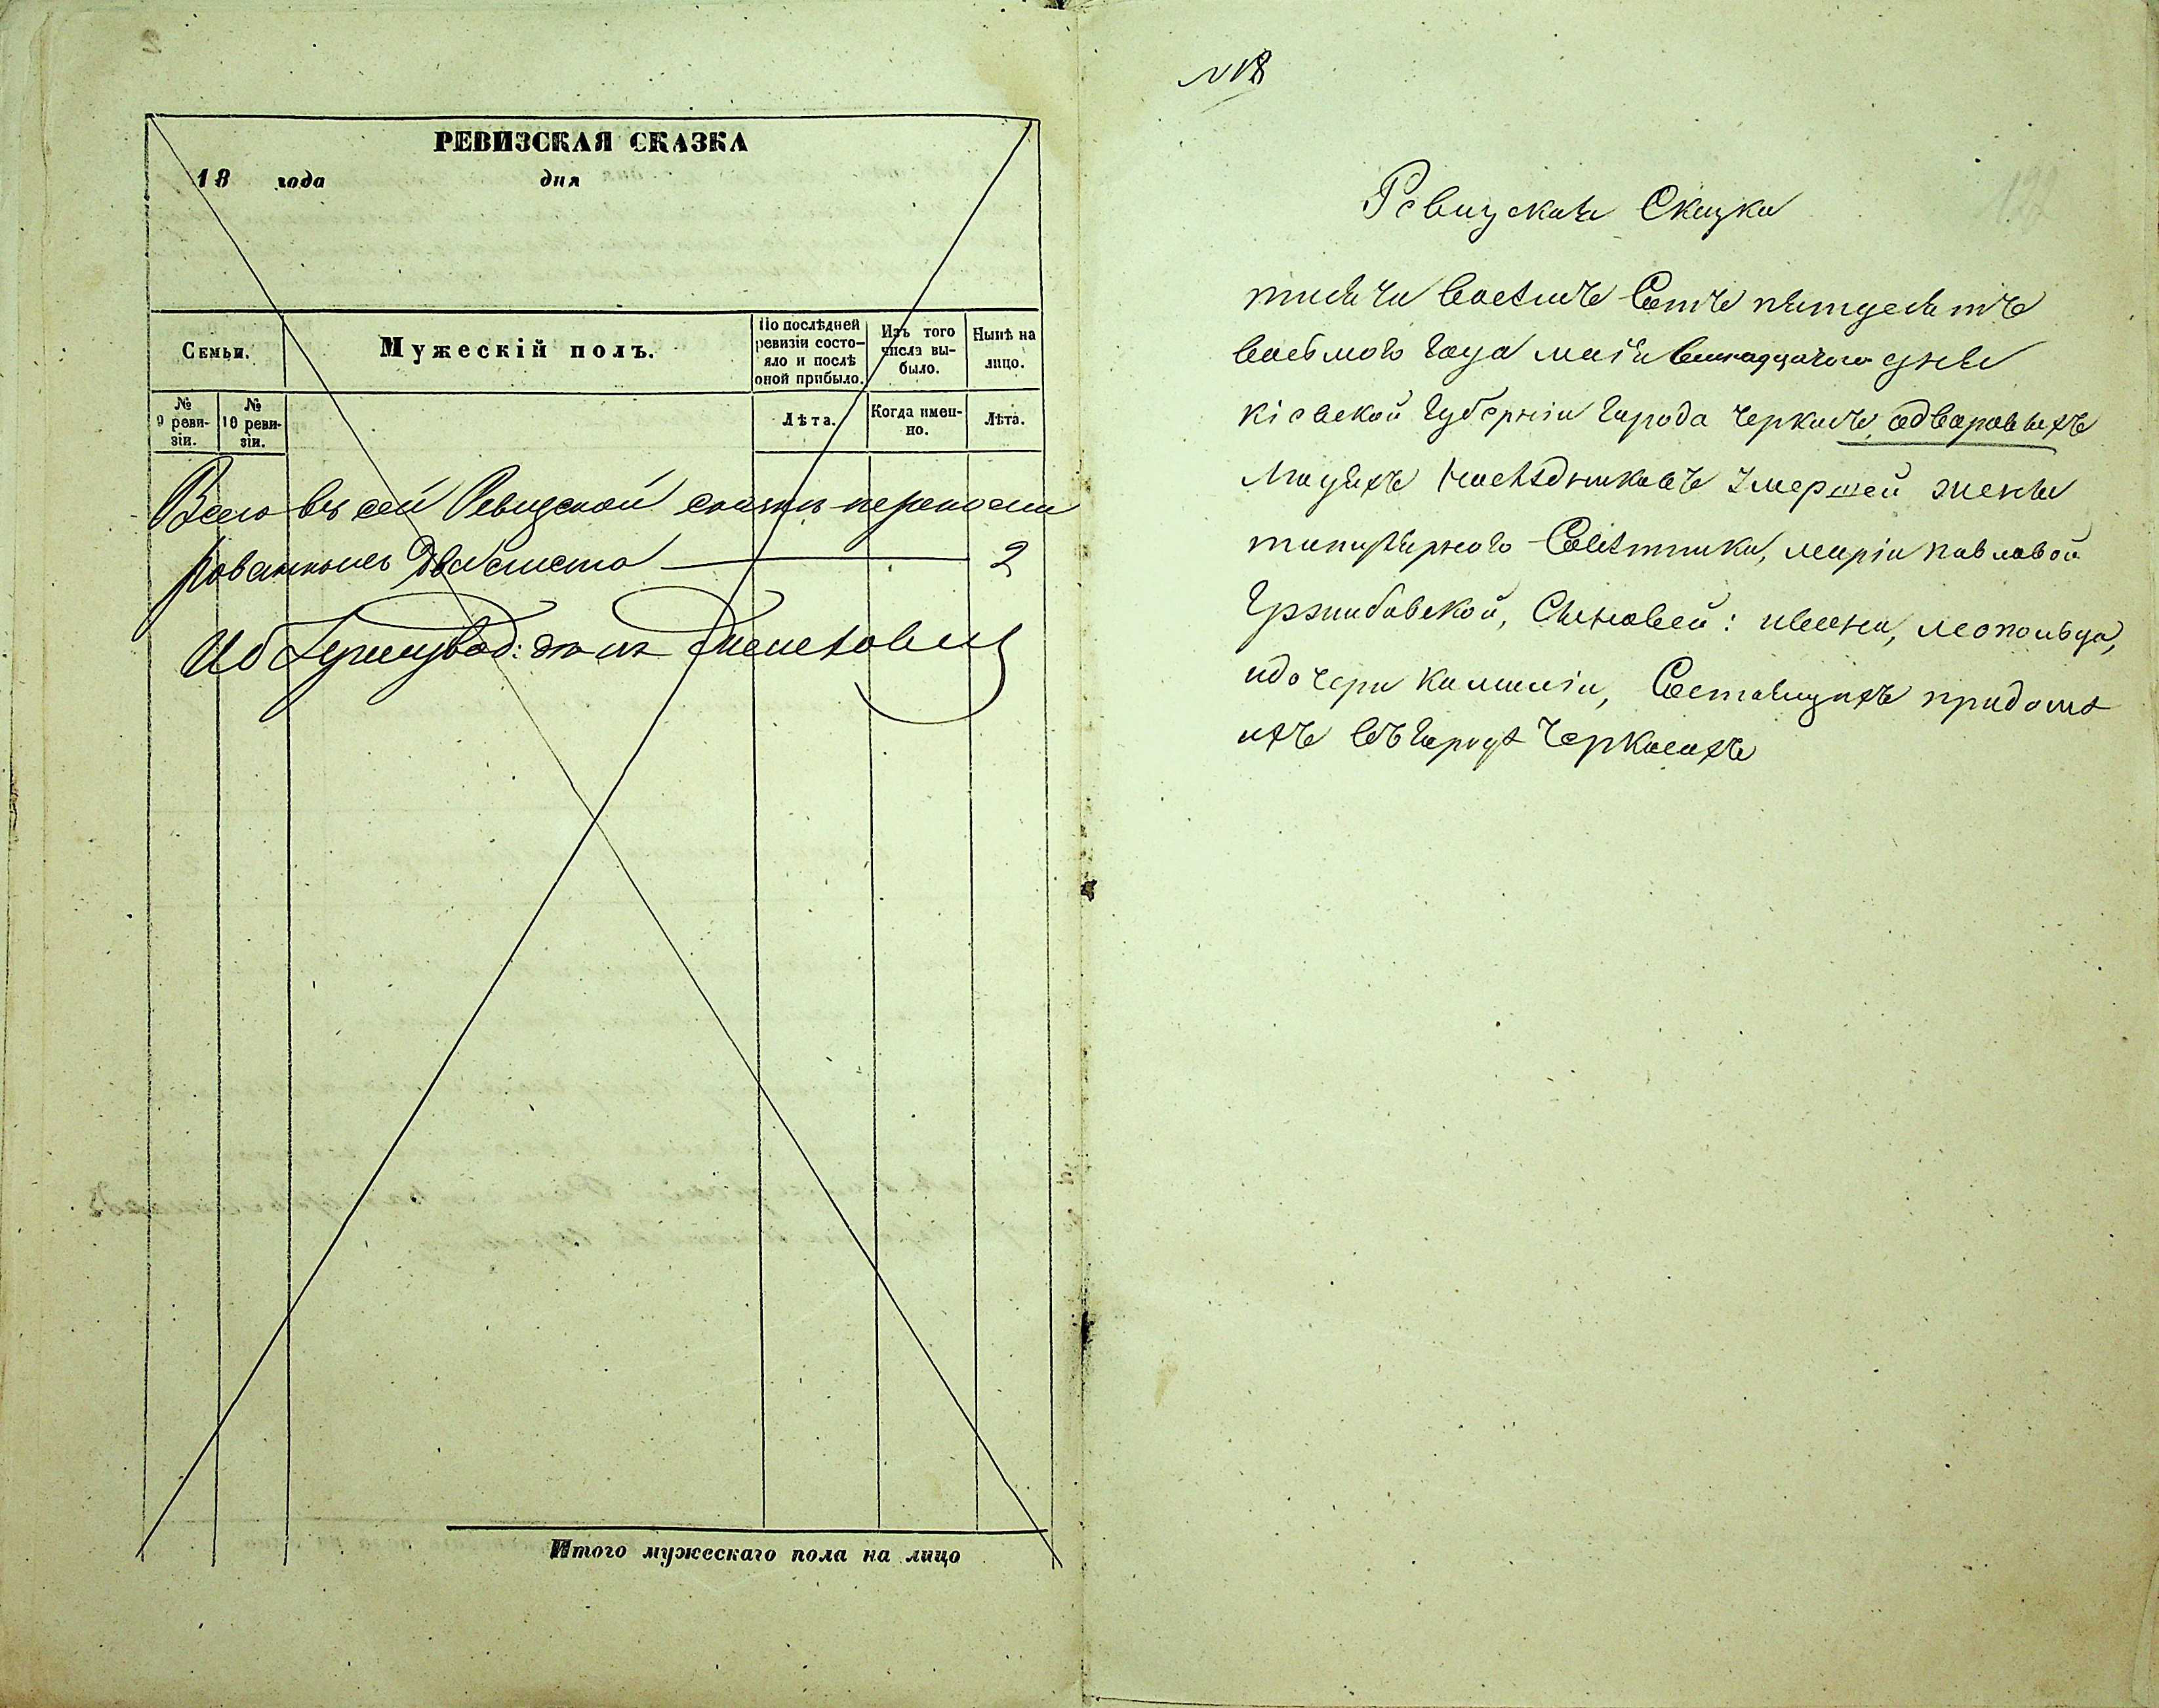 2
РЕВИЗСКАЯ СКАЗКА
18 года дня
Семьи.
Мужескій полъ.
По послѣдней ревизіи состо-
яло и послѣ
оной прибыло.
Изъ того
числа вы-
было.
Нынѣ на
лицо.
№
9 реви-
зіи.
№
10 реви-
зіи.
Лѣта.
Когда имен-
но.
Лѣта.
Всего въ сей Ревизской сказкѣ перенуме
рованныхъ два листа 2
№ 18
122
Ревизская Сказка
тысяча восемъ Сотъ пятдесятъ
восьмого года маія дня
кіевской губерніи города Черкасъ, одворовыхъ
людяхъ наслѣдниковъ Умершей жены
титулярного Совѣтника, маріи павловой
Гржибовской, Сыновей: ивана, леопольда,
идочери камиліи, Состоящихъ придомѣ
ихъ въ городѣ Черкасахъ
Итого мужескаго пола на лицо